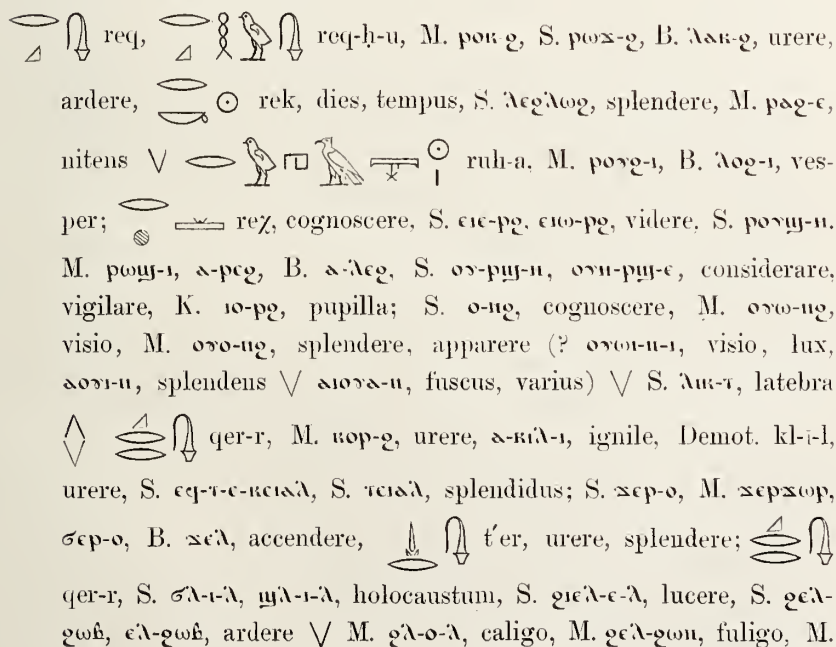 𓂋𓈎𓊮 req, 𓂋𓈎𓎛𓅱𓊮 req-ḥ-u, M. ⲣⲟⲕ-ϩ, S. ⲣⲱϫ-ϩ, B. ⲗⲁⲕ-ϩ, urere,
ardere, 𓂋𓎡𓇳 rek, dies, tempus, S. ⲗⲉϩⲗⲱϩ, splendere, M. ⲣⲁϩ-ⲉ,
nitens \/ 𓂋𓅱𓉔𓄿𓇰𓇳𓏤 ruh-a, M. ⲣⲟⲩϩ-ⲓ, B. ⲗⲟϩ-ⲓ, ves-
per; 𓂋𓐍𓏛 reχ, cognoscere, S. ⲉⲓⲉ-ⲣϩ, ⲉⲓⲱ-ⲣϩ, videre, S. ⲣⲟⲩϣ-ⲛ,
M. ⲣⲱϣ-ⲓ, ⲁ-ⲣⲉϩ, B. ⲁ-ⲗⲉϩ, S. ⲟⲩ-ⲣϣ-ⲛ, ⲟⲩⲛ-ⲣϣ-ⲉ, considerare,
vigilare, K. ⲓⲟ-ⲣϩ, pupilla; S. ⲟ-ⲛϩ, cognoscere, M. ⲟⲩⲱ-ⲛϩ,
visio, M. ⲟⲩⲟ-ⲛϩ, splendere, apparere (? ⲟⲩⲱⲓ-ⲛ-ⲓ, visio, lux,
ⲁⲟⲩⲓ-ⲛ, splendens \/ ⲁⲓⲟⲩⲁ-ⲛ, fuscus, varius) \/ S. ⲗⲓⲕ-ⲧ, latebra
/\ \/ 𓈎𓂋𓂋𓊮 qer-r, M. ⲕⲟⲣ-ϩ, urere, ⲁ-ⲕⲓⲗ-ⲓ, ignile, Demot. kl-i-l,
urere, S. ⲉϥ-ⲧ-ⲉ-ⲕⲉⲓⲁⲗ, S. ⲧⲉⲓⲁⲗ, splendidus; S. ϫⲉⲣ-ⲟ, M. ϫⲉⲣϫⲱⲣ,
ϭⲉⲣ-ⲟ, B. ϫⲉⲗ, accendere, 𓍑𓂋𓊮 t'er, urere, splendere; 𓈎𓂋𓂋𓊮
qer-r, S. ϭⲗ-ⲓ-ⲗ, ϣⲗ-ⲓ-ⲗ, holocaustum, S. ϩⲓⲉⲗ-ⲉ-ⲗ, lucere, S. ϩⲉⲗ-
ϩⲱⲃ, ⲉⲗ-ϩⲱⲃ, ardere \/ M. ϩⲗ-ⲟ-ⲗ, caligo, M. ϩⲉⲗ-ϩⲱⲛ, fuligo, M.